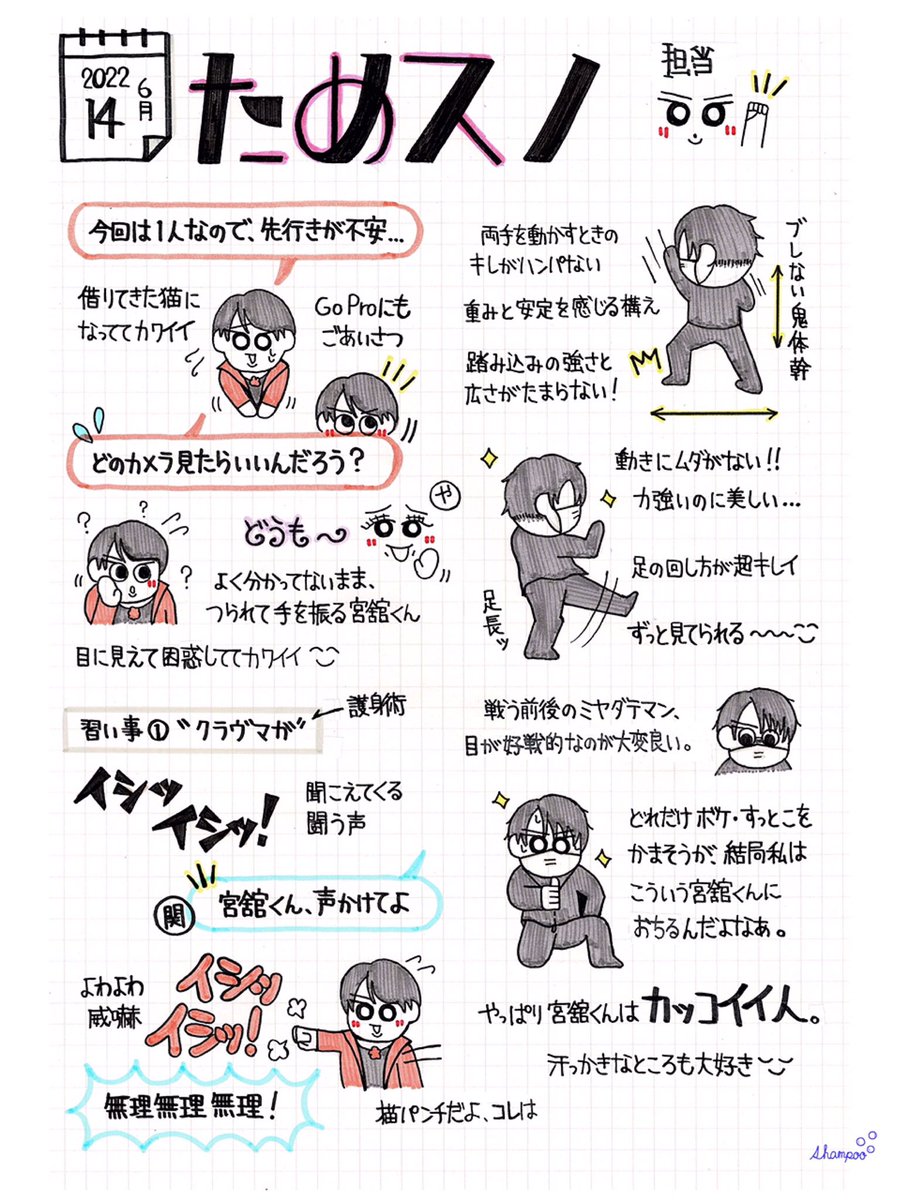 2022
6月
14
ためスノ
担当
今回は1人なので、先行きが不安…
借りてきた猫に
なっててカワイイ
Go Proにも
ごあいさつ
どのカメラ見たらいいんだろう?
や
どうも〜
よく分かってないまま、
つられて手を振る宮舘くん
目に見えて困惑しててカワイイ
護身術
習い事① "クラヴマガ"
イシッ
イシッ!
聞こえてくる
闘う声
関
宮舘くん、声かけてよ
よわよわ
威嚇
イシッ
イシッ!
無理無理無理!
猫パンチだよ、コレは
両手を動かすときの
キレがハンパない
重みと安定を感じる構え
踏み込みの強さと
広さがたまらない!
ブレない鬼体幹
動きにムダがない!!
力強いのに美しい…
足の回し方が超キレイ
足長ッ
ずっと見てられる〜〜〜
戦う前後のミヤダテマン、
目が好戦的なのが大変良い。
どれだけボケ・すっとこを
かまそうが、結局私は
こういう宮舘くんに
おちるんだよなあ。
やっぱり宮舘くんはカッコイイ人。
汗っかきなところも大好き
Shampoo